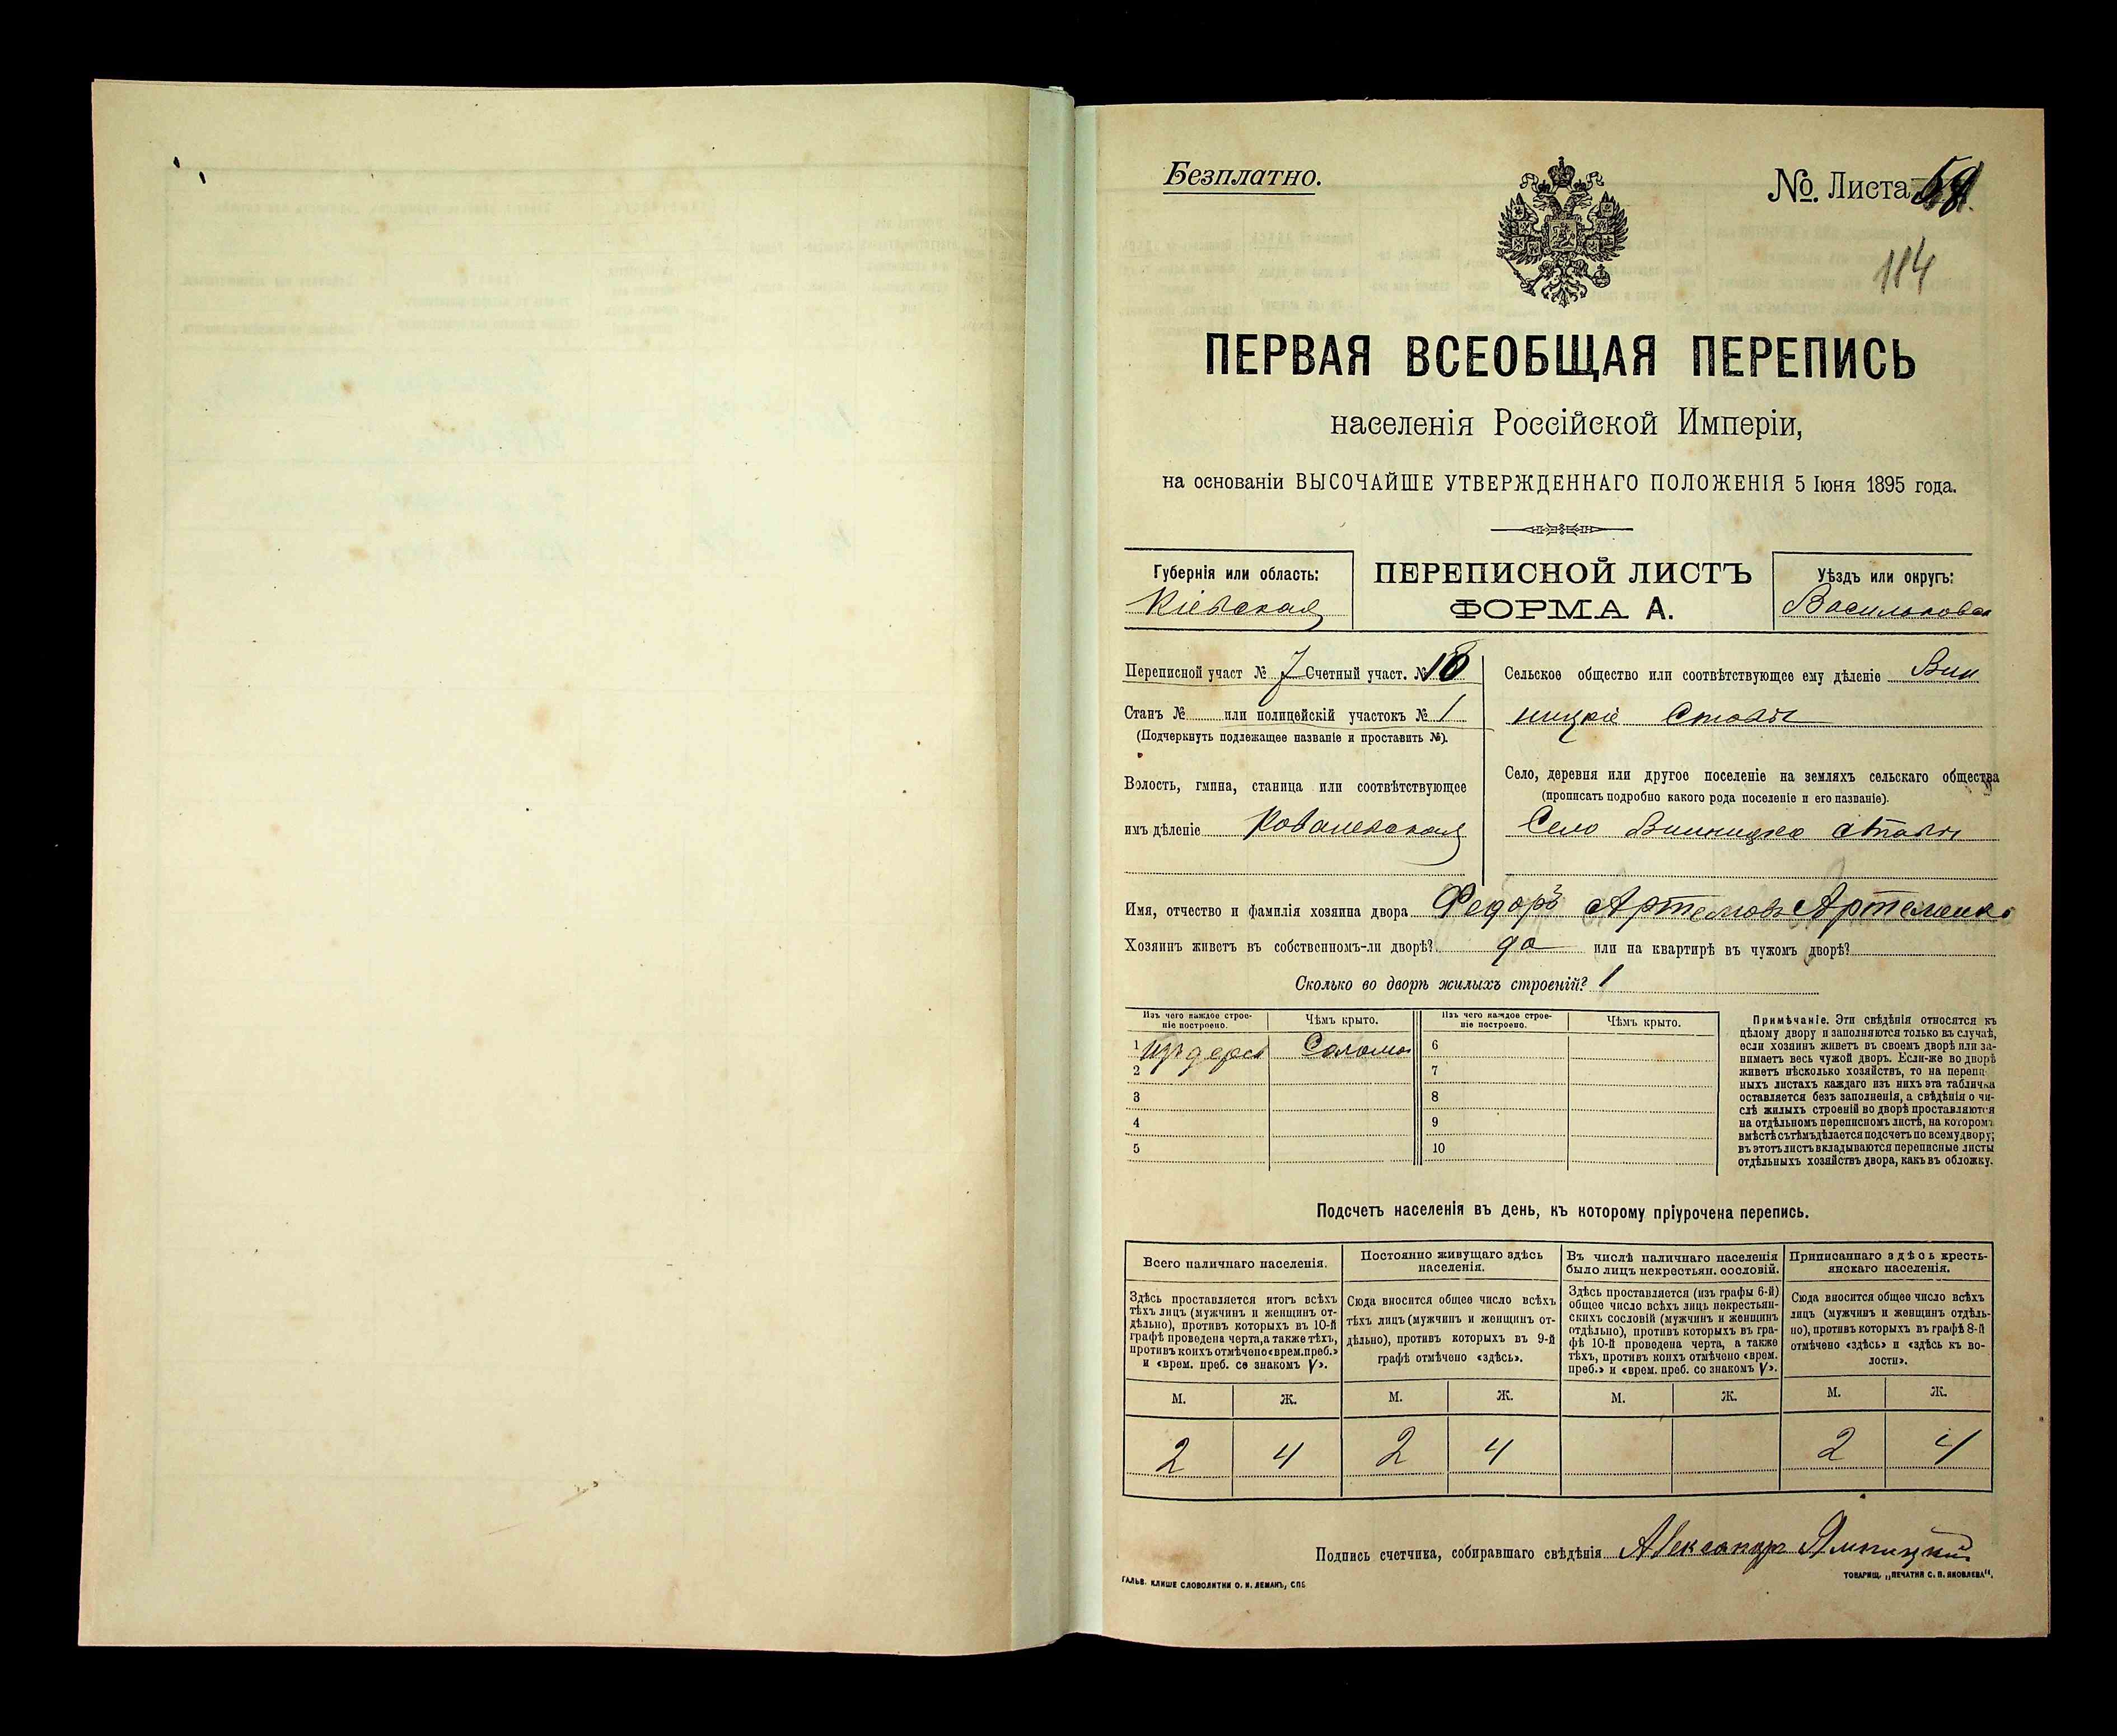 Безплатно.
№. Листа
184
ПЕРВАЯ ВСЕОБЩАЯ ПЕРЕПИСЬ
населенія Россійской Имперіи,
на основаніи ВЫСОЧАЙШЕ УТВЕРЖДЕННАГО ПОЛОЖЕНІЯ 5 Іюня 1895 года.
Губернія или область:
Кіевская
ПЕРЕПИСНОЙ ЛИСТЪ
ФОРМА А.
Уѣздъ или округъ:
Васильковск
Переписной участ № 7 Счетный участ. №
Станъ № или полицейскій участокъ № 1
(Подчеркнуть подлежащее названіе и проставить №).
Волость, гмина, станица или соотвѣтствующее
имъ дѣленіе Ковалевская
Сельское общество или соотвѣтствующее ему дѣленіе Вин
ницкіе Ставы
Село, деревня или другое поселеніе на земляхъ сельскаго общества
(прописать подробно какого рода поселеніе и его названіе).
Село Винницкіе Ставы
Имя, отчество и фамилія хозяина двора Федоръ Артемовъ Артеменко
Хозяинъ живетъ въ собственномъ-ли дворѣ? да или на квартирѣ въ чужомъ дворѣ?
Сколько во дворѣ жилыхъ строеній? 1
Изъ чего каждое строе-
ніе построено.
Чѣмъ крыто.
Изъ чего каждое строе-
ніе построено.
Чѣмъ крыто.
1 Изъ дерев Солома 6
2 7
3 8
4 9
5 10
Примѣчаніе. Эти свѣдѣнія относятся къ
цѣлому двору и заполняются только въ случаѣ,
если хозяинъ живетъ въ своемъ дворѣ или за-
нимаетъ весь чужой дворъ. Если-же во дворѣ
живетъ нѣсколько хозяйствъ, то на перепи-
ныхъ листахъ каждаго изъ нихъ эта табличка
оставляется безъ заполненія, а свѣдѣнія о чи-
слѣ жилыхъ строеній во дворѣ проставляются
на отдѣльномъ переписномъ листѣ, на которомъ
вмѣстѣ съ тѣмъ дѣлается подсчетъ по всему двору;
въ этотъ листъ вкладываются переписные листы
отдѣльныхъ хозяйствъ двора, какъ въ обложку.
Подсчетъ населенія въ день, къ которому пріурочена перепись.
Всего наличнаго населенія.
Здѣсь проставляется итогъ всѣхъ
тѣхъ лицъ (мужчинъ и женщинъ от-
дѣльно), противъ которыхъ въ 10-й
графѣ проведена черта, а также тѣхъ,
противъ коихъ отмѣчено «врем. преб.»
и «врем. преб. со знакомъ V».
Постоянно живущаго здѣсь
населенія.
Сюда вносится общее число всѣхъ
тѣхъ лицъ (мужчинъ и женщинъ от-
дѣльно), противъ которыхъ въ 9-й
графѣ отмѣчено «здѣсь».
Въ числѣ наличнаго населенія
было лицъ некрестьян. сословій.
Здѣсь проставляется (изъ графы 6-й)
общее число всѣхъ лицъ некрестьян-
скихъ сословій (мужчинъ и женщинъ
отдѣльно), противъ которыхъ въ гра-
фѣ 10-й проведена черта, а также
тѣхъ, противъ коихъ отмѣчено «врем.
преб.» и «врем. преб. со знакомъ V».
Приписаннаго здѣсь кресть-
янскаго населенія.
Сюда вносится общее число всѣхъ
лицъ (мужчинъ и женщинъ отдѣль-
но), противъ которыхъ въ графѣ 8-й
отмѣчено «здѣсь» и «здѣсь къ во-
лости».
М. Ж. М. Ж. М. Ж. М. Ж.
2 4 2 4 2 4
Подпись счетчика, собиравшаго свѣдѣнія Александръ
ГАЛЬВ. КЛИШЕ СЛОВОЛИТНИ О. И. ЛЕМАНЪ, СПБ
ТОВАРИЩ. „ПЕЧАТНЯ С. П. ЯКОВЛЕВА“.